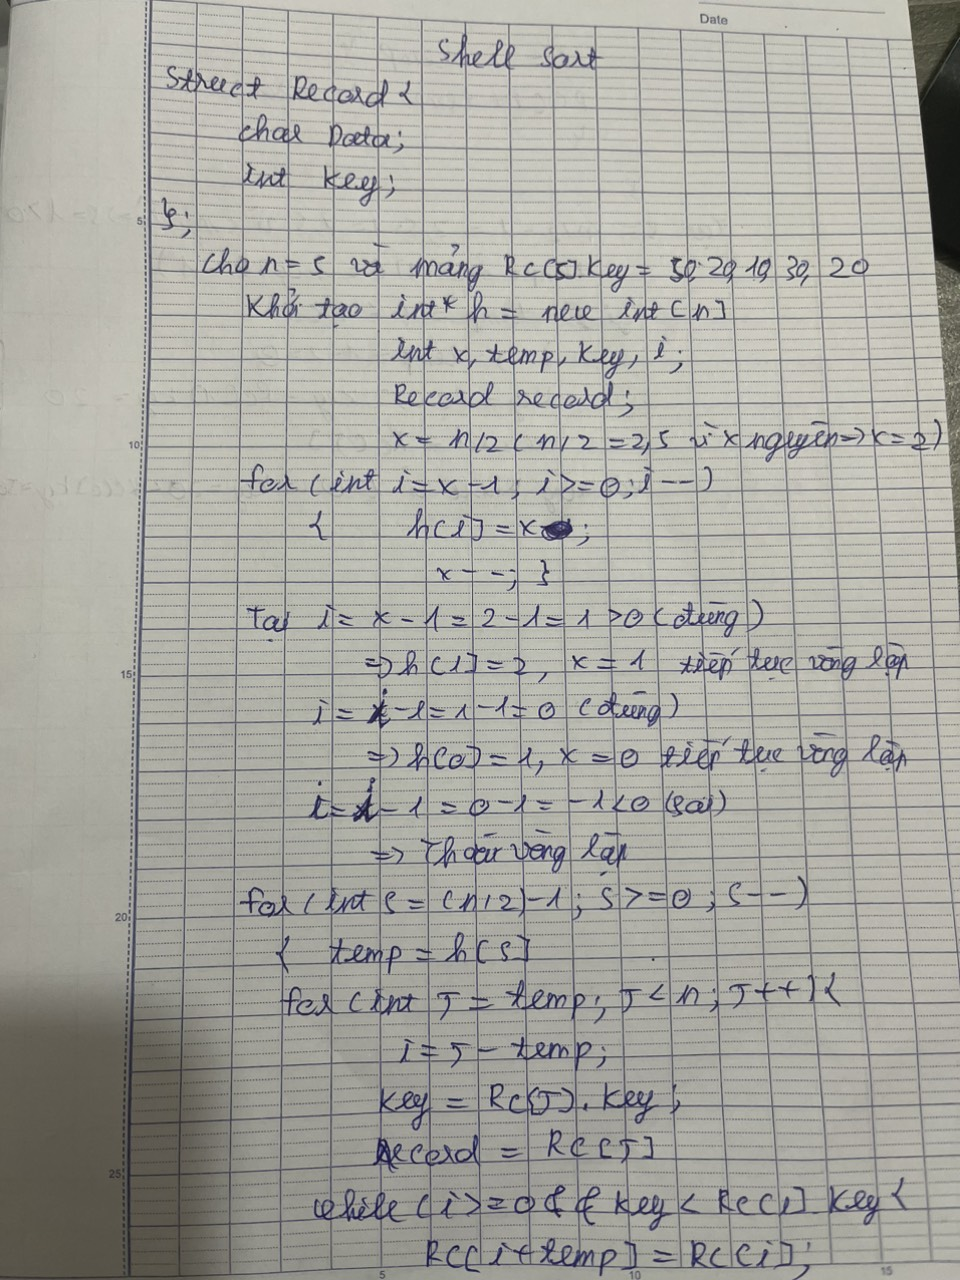 Date
Shell Sort
Struct Record {
char Data;
int Key;
};
5
Cho n = 5 và mảng Rc[5].Key = 50, 20, 10, 30, 20
Khởi tạo int* h = new int[n]
int x, temp, Key, i;
Record record;
10
x = n/2 (n/2 = 2,5 vì x nguyên => x = 2)
for (int i = x - 1; i >= 0; i--)
{ h[i] = x ;
x--; }
Tại i = x - 1 = 2 - 1 = 1 > 0 (đúng)
15
=> h[1] = 2, x = 1 tiếp tục vòng lặp
i = i - 1 = 1 - 1 = 0 (đúng)
=> h[0] = 1, x = 0 tiếp tục vòng lặp
i = i - 1 = 0 - 1 = -1 < 0 (sai)
=> Thoát vòng lặp
20
for (int s = (n/2) - 1; s >= 0; s--)
{ temp = h[s]
for (int J = temp; J < n; J++) {
i = J - temp;
Key = Rc[J].Key;
Record = RC[J]
25
while (i >= 0 && Key < Rc[i].Key {
RC[i + temp] = RC[i];
5 10 15